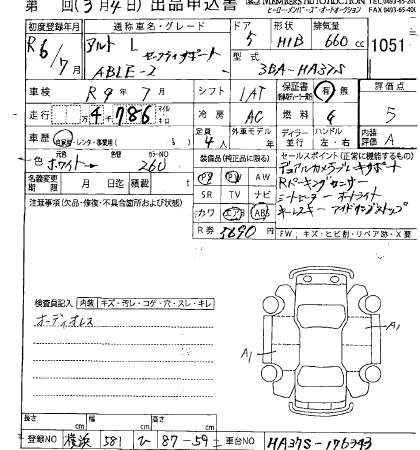 第 回(3月4日)出品申込書
ヒーロー・メンバーズ・オートオークション
初度登録年月 通称車名・グレード ドア 形状 排気量
R6/7月 アルト L セーフティサポート 5 H/B 660cc 1051
ABLE-2 型式 3BA-HA37S
車検 R9年7月 シフト IAT 保証書 有 無 評価点
走行 万4千786 マイル キロ 冷房 AC 燃料 5
車歴 自家用・レンタ・事業用 定員 4人 外車モデル 年 ディーラー 並行 ハンドル 左・右 内装評価 A
色 元色 ホワイト 色替 カラーNO 260 装備品(純正品に限る) セールスポイント(正常に機能するもの)
名義変更期限 月 日迄 積載 t PS PW AW
注意事項(欠品・修復・不具合箇所および状態) SR TV ナビ
カワ エアB ABS
Rパーキングセンサー
シートヒーター オートライト
キーレスキー アイドリングストップ
R券 5690円 FW:キズ・ヒビ割・リペア跡・X要
検査員記入 内装 キズ・汚レ・コゲ・穴・スレ・キレ
オーディオレス
A1
A1
長さ cm 幅 cm 高さ cm
登録NO 横浜 581 ひ 87-59 車台NO HA37S-176343